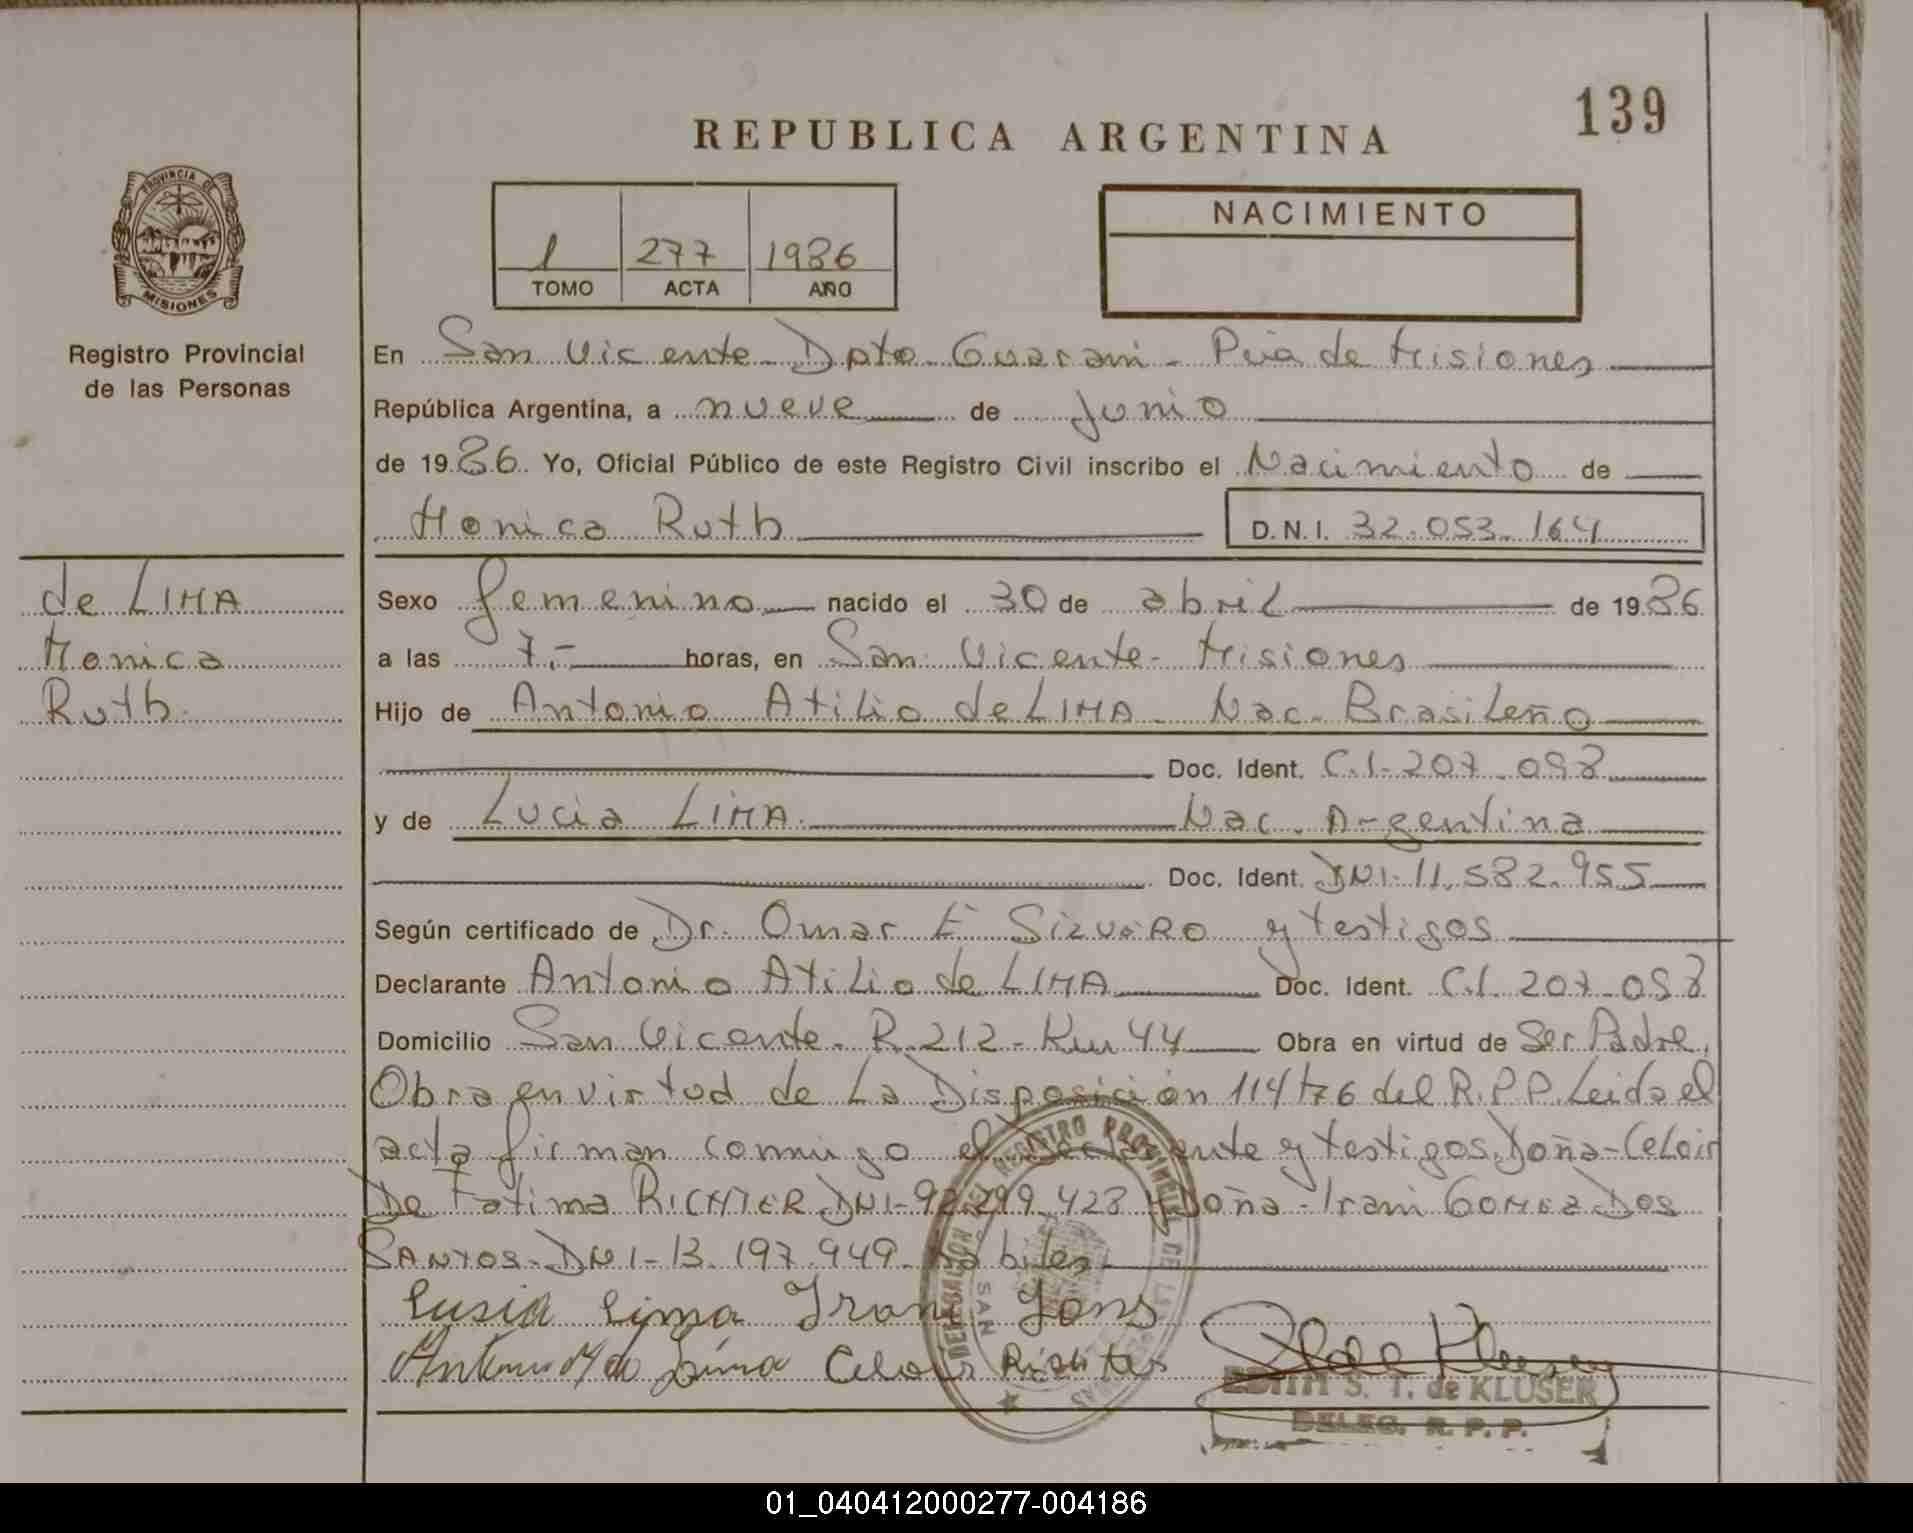 139
REPUBLICA ARGENTINA
PROVINCIA DE
MISIONES
1 277 1986
TOMO ACTA AÑO
NACIMIENTO
Registro Provincial
de las Personas
En San Vicente Dpto Guarani - Pcia de Misiones
República Argentina, a nueve de Junio
de 1986. Yo, Oficial Público de este Registro Civil inscribo el Nacimiento de
Monica Ruth D.N.I. 32.053.164
de LIMA
Monica
Ruth.
Sexo femenino nacido el 30 de abril de 1986
a las 7.- horas, en San Vicente - Misiones
Hijo de Antonio Atilio de LIMA - Nac. Brasileño
Doc. Ident. C.I. 207.098
y de Lucia LIMA. Nac. Argentina
Doc. Ident. DNI-11.582.955
Según certificado de Dr. Omar E y testigos
Declarante Antonio Atilio de LIMA Doc. Ident. C.I. 207.098
Domicilio San Vicente - R. 212 - Km 44 Obra en virtud de Ser Padre,
Obra en virtud de La Disposición 114/76 del R.P.P. Leida el
acta firman conmigo el Declarante y testigos, Doña - Celoir
De Fatima RICHTER DNI-92.299.428 y Doña - Irani GOMEZ DOS
SANTOS - DNI-13.197.949. Habiles.
Lusia Lima Irani
Antonio de Lima Celoir Richter
DELEGACION DEL REGISTRO PROVINCIAL DE LAS PERSONAS
SAN
EDITH S. T. de KLUSER
DELEG. R. P. P.
01_040412000277-004186